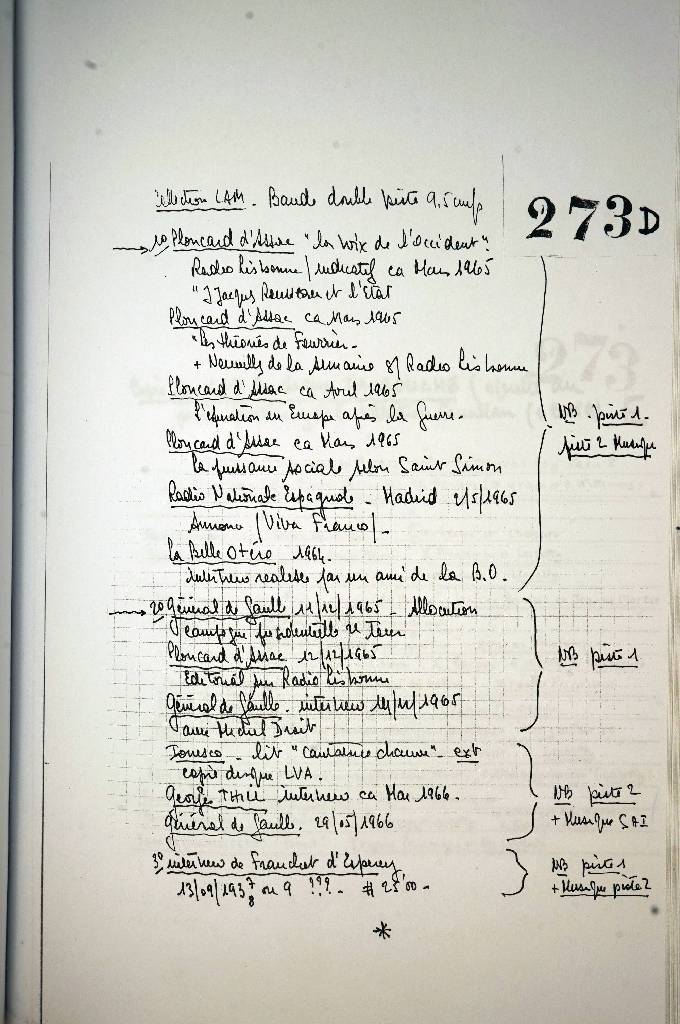 Collection LAM. Bande double piste 9,5 cm/s
273D
1º Ploncard d'Assac "La Voix de l'Occident".
Radio Lisbonne / indicatif ca Mars 1965
"J Jacques Rousseau et l'Etat
Ploncard d'Assac ca Mars 1965
"Les théories de Fourrier.
+ Nouvelles de la semaine of Radio Lisbonne
Ploncard d'Assac ca Avril 1965
en Europe après la Guerre.
Ploncard d'Assac ca Mars 1965
La puissance sociale selon Saint Simon
Radio Nationale Espagnole - Madrid 2/5/1965
Annonce / Viva Franco / -
La Belle Otéro 1964.
interview realisée par un ami de la B.O.
NB. piste 1.
piste 2 Musique
2º Général de Gaulle 11/12/1965 - Allocution
campagne présidentielle 2e Tour
Ploncard d'Assac 12/12/1965
Editorial sur Radio Lisbonne
Général de Gaulle. interview /1965
avec Michel Droit
NB piste 1
Ionesco - lit "Cantatrice chauve" - ext
copie disque LVA.
Georges THILL interview ca Mars 1966.
Général de Gaulle. 29/05/1966
NB piste 2
+ Musique SAI
3º interview de Franchet d'Esperey
13/09/1937 8 ou 9 ??? - # 25'00 -
NB piste 1
+ Musique piste 2
*